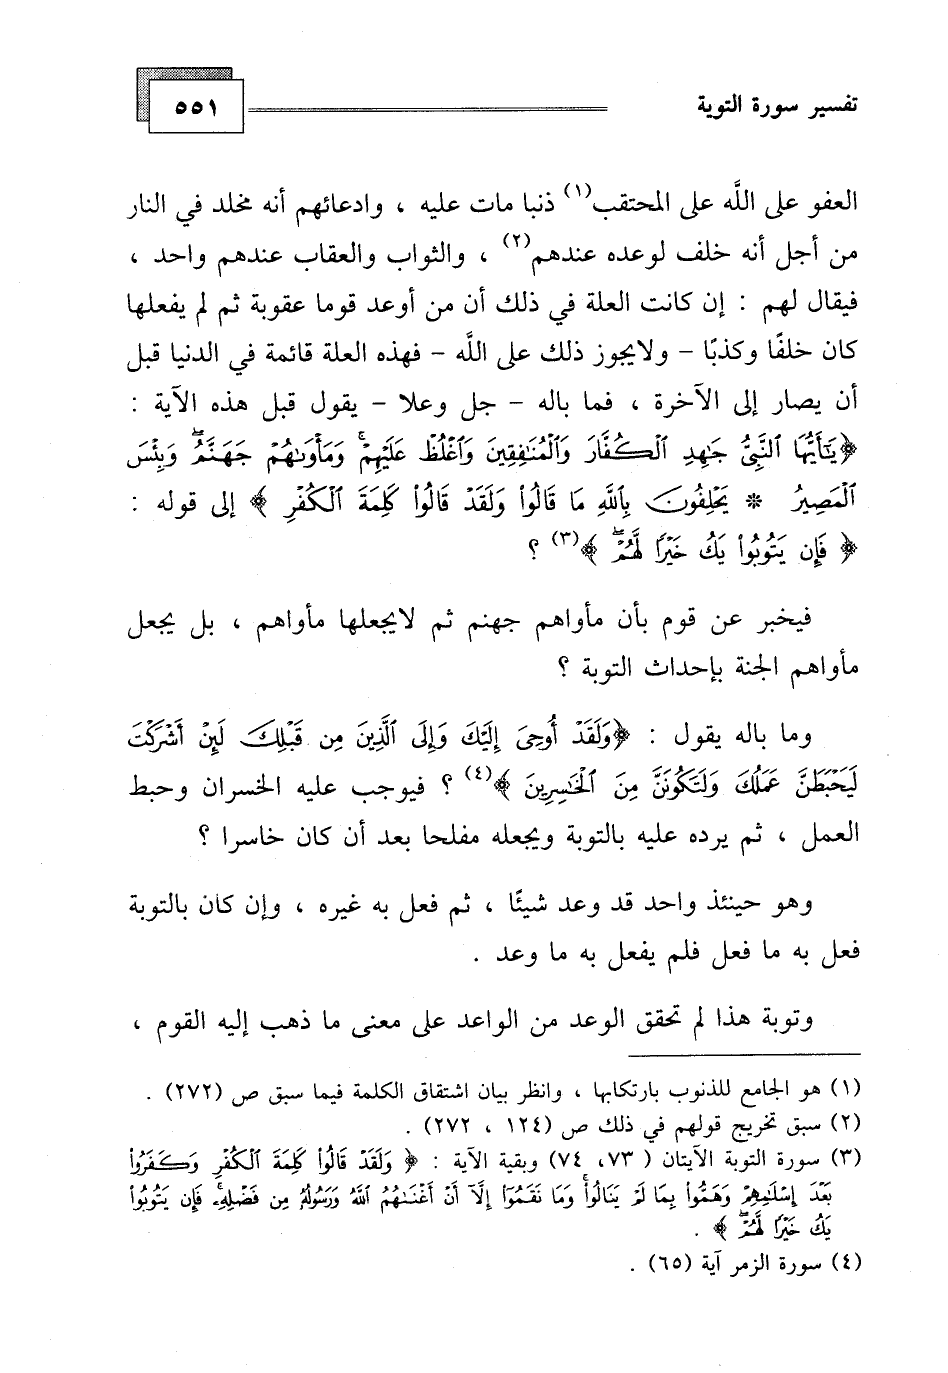 تفسير سورة التوبة
٥٥١
العفو على اللَّه على المحتقب(١) ذنبا مات عليه ، وادعائهم أنه مخلد في النار
من أجل أنه خلف لوعده عندهم(٢) ، والثواب والعقاب عندهم واحد ،
فيقال لهم : إن كانت العلة في ذلك أن من أوعد قوما عقوبة ثم لم يفعلها
كان خلفًا وكذبًا – ولايجوز ذلك على اللَّه – فهذه العلة قائمة في الدنيا قبل
أن يصار إلى الآخرة ، فما باله – جل وعلا – يقول قبل هذه الآية :
﴿يَٰٓأَيُّهَا ٱلنَّبِيُّ جَٰهِدِ ٱلْكُفَّارَ وَٱلْمُنَٰفِقِينَ وَٱغْلُظْ عَلَيْهِمْ ۚ وَمَأْوَىٰهُمْ جَهَنَّمُ ۖ وَبِئْسَ
ٱلْمَصِيرُ * يَحْلِفُونَ بِٱللَّهِ مَا قَالُوا۟ وَلَقَدْ قَالُوا۟ كَلِمَةَ ٱلْكُفْرِ ﴾ إلى قوله :
﴿ فَإِن يَتُوبُوا۟ يَكُ خَيْرًا لَّهُمْ ۖ ﴾(٣) ؟
فيخبر عن قوم بأن مأواهم جهنم ثم لايجعلها مأواهم ، بل يجعل
مأواهم الجنة بإحداث التوبة ؟
وما باله يقول : ﴿وَلَقَدْ أُوحِيَ إِلَيْكَ وَإِلَى ٱلَّذِينَ مِن قَبْلِكَ لَئِنْ أَشْرَكْتَ
لَيَحْبَطَنَّ عَمَلُكَ وَلَتَكُونَنَّ مِنَ ٱلْخَٰسِرِينَ ﴾(٤) ؟ فيوجب عليه الخسران وحبط
العمل ، ثم يرده عليه بالتوبة ويجعله مفلحا بعد أن كان خاسرا ؟
وهو حينئذ واحد قد وعد شيئًا ، ثم فعل به غيره ، وإن كان بالتوبة
فعل به ما فعل فلم يفعل به ما وعد .
وتوبة هذا لم تحقق الوعد من الواعد على معنى ما ذهب إليه القوم ،
(١) هو الجامع للذنوب بارتكابها ، وانظر بيان اشتقاق الكلمة فيما سبق ص (٢٧٢) .
(٢) سبق تخريج قولهم في ذلك ص (١٢٤ ، ٢٧٢) .
(٣) سورة التوبة الآيتان ( ٧٣، ٧٤) وبقية الآية : ﴿ وَلَقَدْ قَالُوا۟ كَلِمَةَ ٱلْكُفْرِ وَكَفَرُوا۟
بَعْدَ إِسْلَٰمِهِمْ وَهَمُّوا۟ بِمَا لَمْ يَنَالُوا۟ ۚ وَمَا نَقَمُوٓا۟ إِلَّآ أَنْ أَغْنَىٰهُمُ ٱللَّهُ وَرَسُولُهُۥ مِن فَضْلِهِۦ ۚ فَإِن يَتُوبُوا۟
يَكُ خَيْرًا لَّهُمْ ۖ ﴾ .
(٤) سورة الزمر آية (٦٥) .